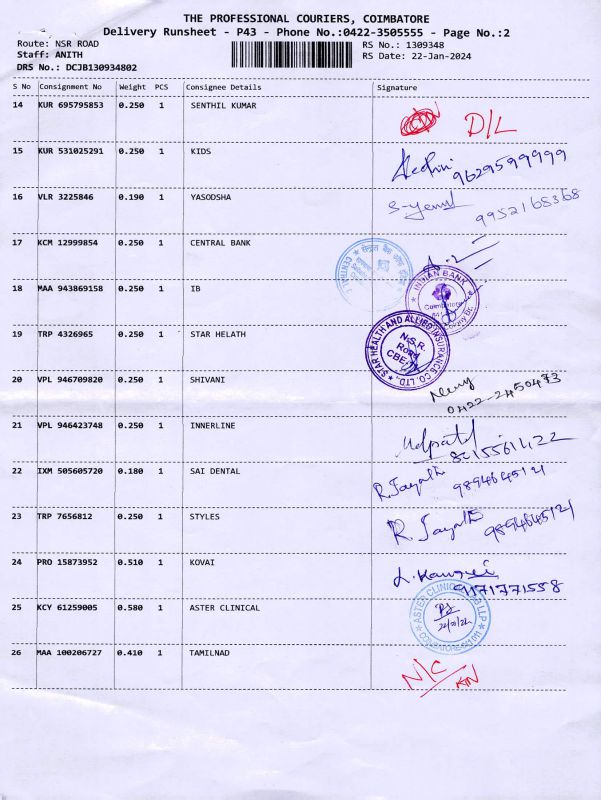 THE PROFESSIONAL COURIERS, COIMBATORE
Delivery Runsheet - P43 - Phone No.:0422-3505555 - Page No.:2
Route: NSR ROAD RS No.: 1309348
Staff: ANITH RS Date: 22-Jan-2024
DRS No.: DCJB130934802
S No Consignment No Weight PCS Consignee Details Signature
14 KUR 695795853 0.250 1 SENTHIL KUMAR D/L
15 KUR 531025291 0.250 1 KIDS 9629599999
16 VLR 3225846 0.190 1 YASODSHA 9952168368
17 KCM 12999854 0.250 1 CENTRAL BANK
18 MAA 943869158 0.250 1 IB INDIAN BANK
19 TRP 4326965 0.250 1 STAR HELATH STAR HEALTH AND ALLIED INSURANCE CO. LTD. N.S.R. Road
20 VPL 946709820 0.250 1 SHIVANI 0422-2450473
21 VPL 946423748 0.250 1 INNERLINE
22 IXM 505605720 0.180 1 SAI DENTAL 9894645121
23 TRP 7656812 0.250 1 STYLES 9894645121
24 PRO 15873952 0.510 1 KOVAI
25 KCY 61259005 0.580 1 ASTER CLINICAL
26 MAA 100206727 0.410 1 TAMILNAD N/C